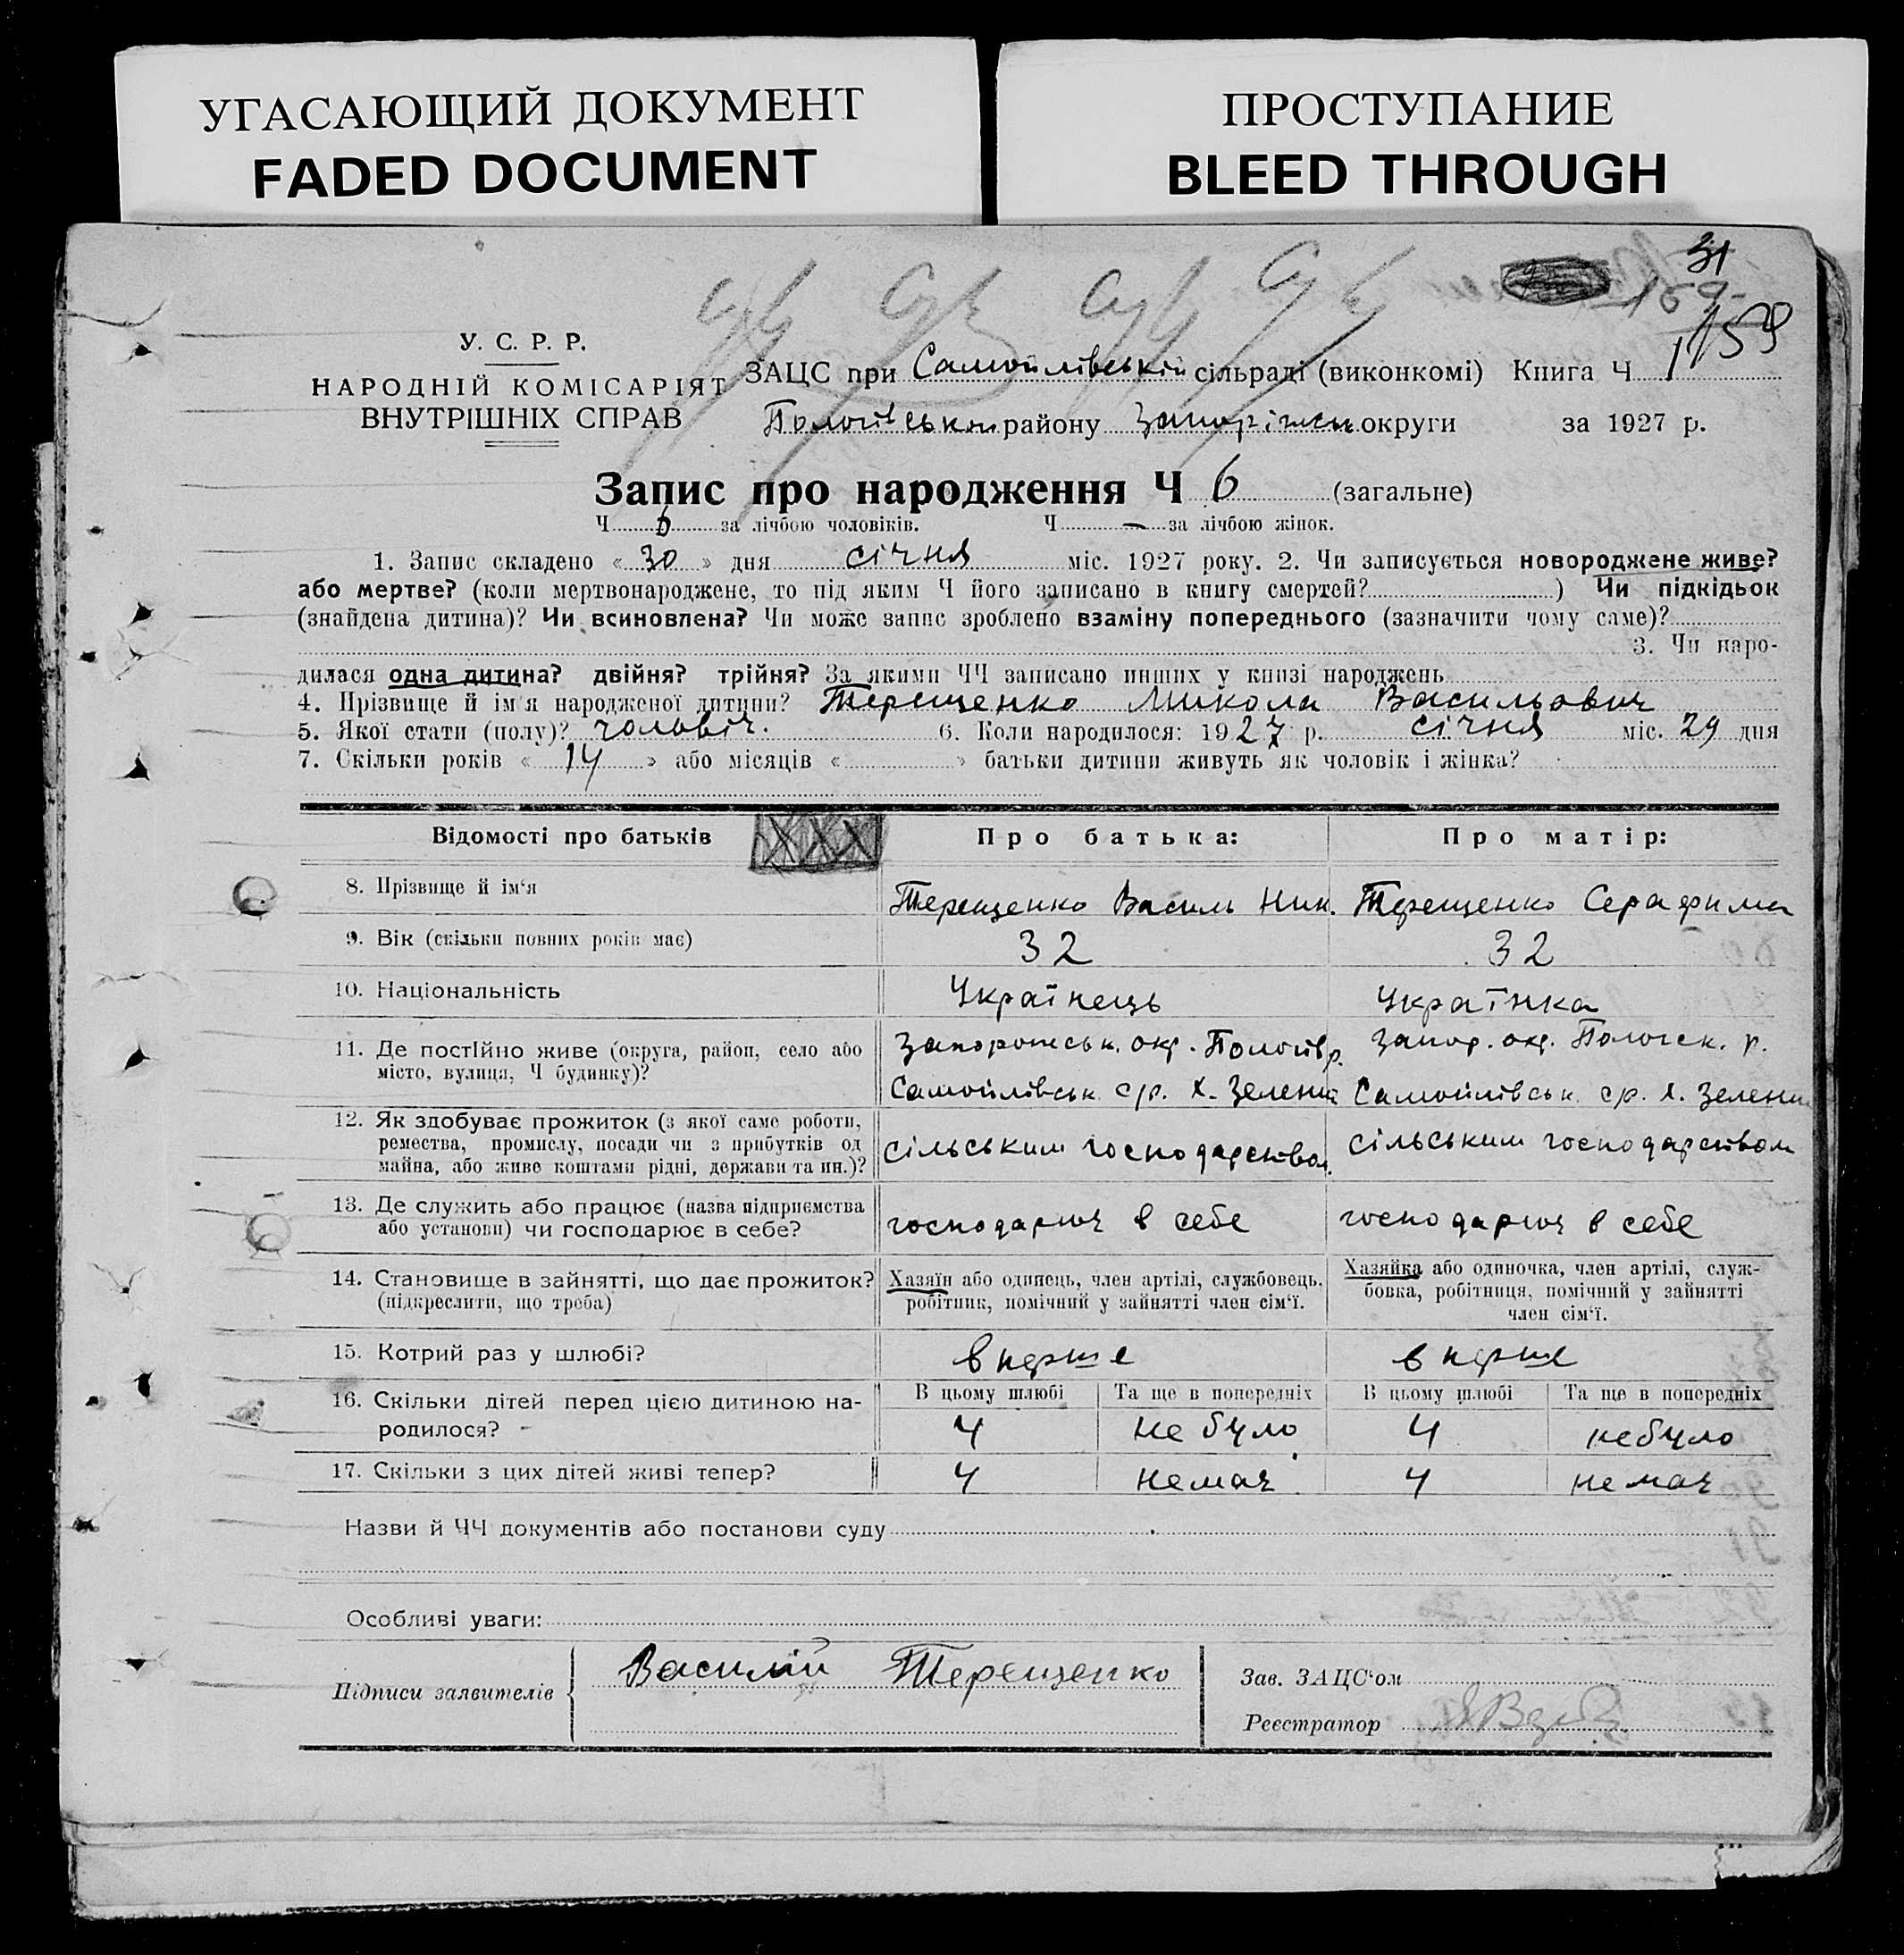 УГАСАЮЩИЙ ДОКУМЕНТ
FADED DOCUMENT
ПРОСТУПАНИЕ
BLEED THROUGH
31
159
159
У. С. Р. Р.
НАРОДНІЙ КОМІСАРІЯТ
ВНУТРІШНІХ СПРАВ
ЗАЦС при Самойлівській сільраді (виконкомі) Книга Ч 1
Пологівськ району Запоріжськ округи за 1927 р.
Запис про народження Ч 6 (загальне)
Ч 6 за лічбою чоловіків. Ч — за лічбою жінок.
1. Запис складено « 30 » дня січня міс. 1927 року. 2. Чи записується новороджене живе?
або мертве? (коли мертвонароджене, то під яким Ч його записано в книгу смертей? ) Чи підкідьок
(знайдена дитина)? Чи всиновлена? Чи може запис зроблено взаміну попереднього (зазначити чому саме)?
3. Чи наро-
дилася одна дитина? двійня? трійня? За якими ЧЧ записано инших у книзі народжень
4. Прізвище й ім'я народженої дитини? Терещенко Микола Васильович
5. Якої стати (полу)? чоловіч. 6. Коли народилося: 1927 р. січня міс. 29 дня
7. Скільки років « 14 » або місяців « » батьки дитини живуть як чоловік і жінка?
Відомості про батьків XXX Про батька: Про матір:
8. Прізвище й ім'я Терещенко Василь Ник. Терещенко Серафима
9. Вік (скільки повних років має) 32 32
10. Національність Українець Українка
11. Де постійно живе (округа, район, село або Запорожськ. окр. Пологів р. Запор. окр. Пологск. р.
місто, вулиця, Ч будинку)? Самойлівськ с/р. х. Зелений Самойлівськ с/р. х. Зелений
12. Як здобуває прожиток (з якої саме роботи,
ремества, промислу, посади чи з прибутків од сільським господарством. сільським господарством
майна, або живе коштами рідні, держави та ин.)?
13. Де служить або працює (назва підприємства
або установи) чи господарює в себе? господарює в себе господарює в себе
14. Становище в зайнятті, що дає прожиток? Хазяїн або одинець, член артілі, службовець, Хазяйка або одиночка, член артілі, служ-
(підкреслити, що треба) робітник, помічний у зайнятті член сім'ї. бовка, робітниця, помічний у зайнятті
член сім'ї.
15. Котрий раз у шлюбі? вперше вперше
16. Скільки дітей перед цією дитиною на- В цьому шлюбі Та ще в попередніх В цьому шлюбі Та ще в попередніх
родилося? 4 не було 4 не було
17. Скільки з цих дітей живі тепер? 4 немає 4 немає
Назви й ЧЧ документів або постанови суду
Особливі уваги:
Підписи заявителів Василій Терещенко Зав. ЗАЦС'ом
Реєстратор